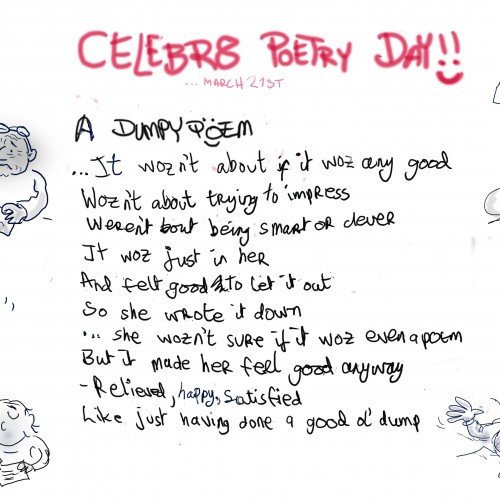 CELEBR8 POETRY DAY!!
...MARCH 21ST
A DUMPY PÖEM
...It wozn't about if it woz any good
Wozn't about trying to impress
Weren't bout being smart or clever
It woz just in her
And felt good to let it out
So she wrote it down
... she wozn't sure if it woz even a poem
But it made her feel good anyway
- Relieved, happy, satisfied
Like just having done a good ol' dump